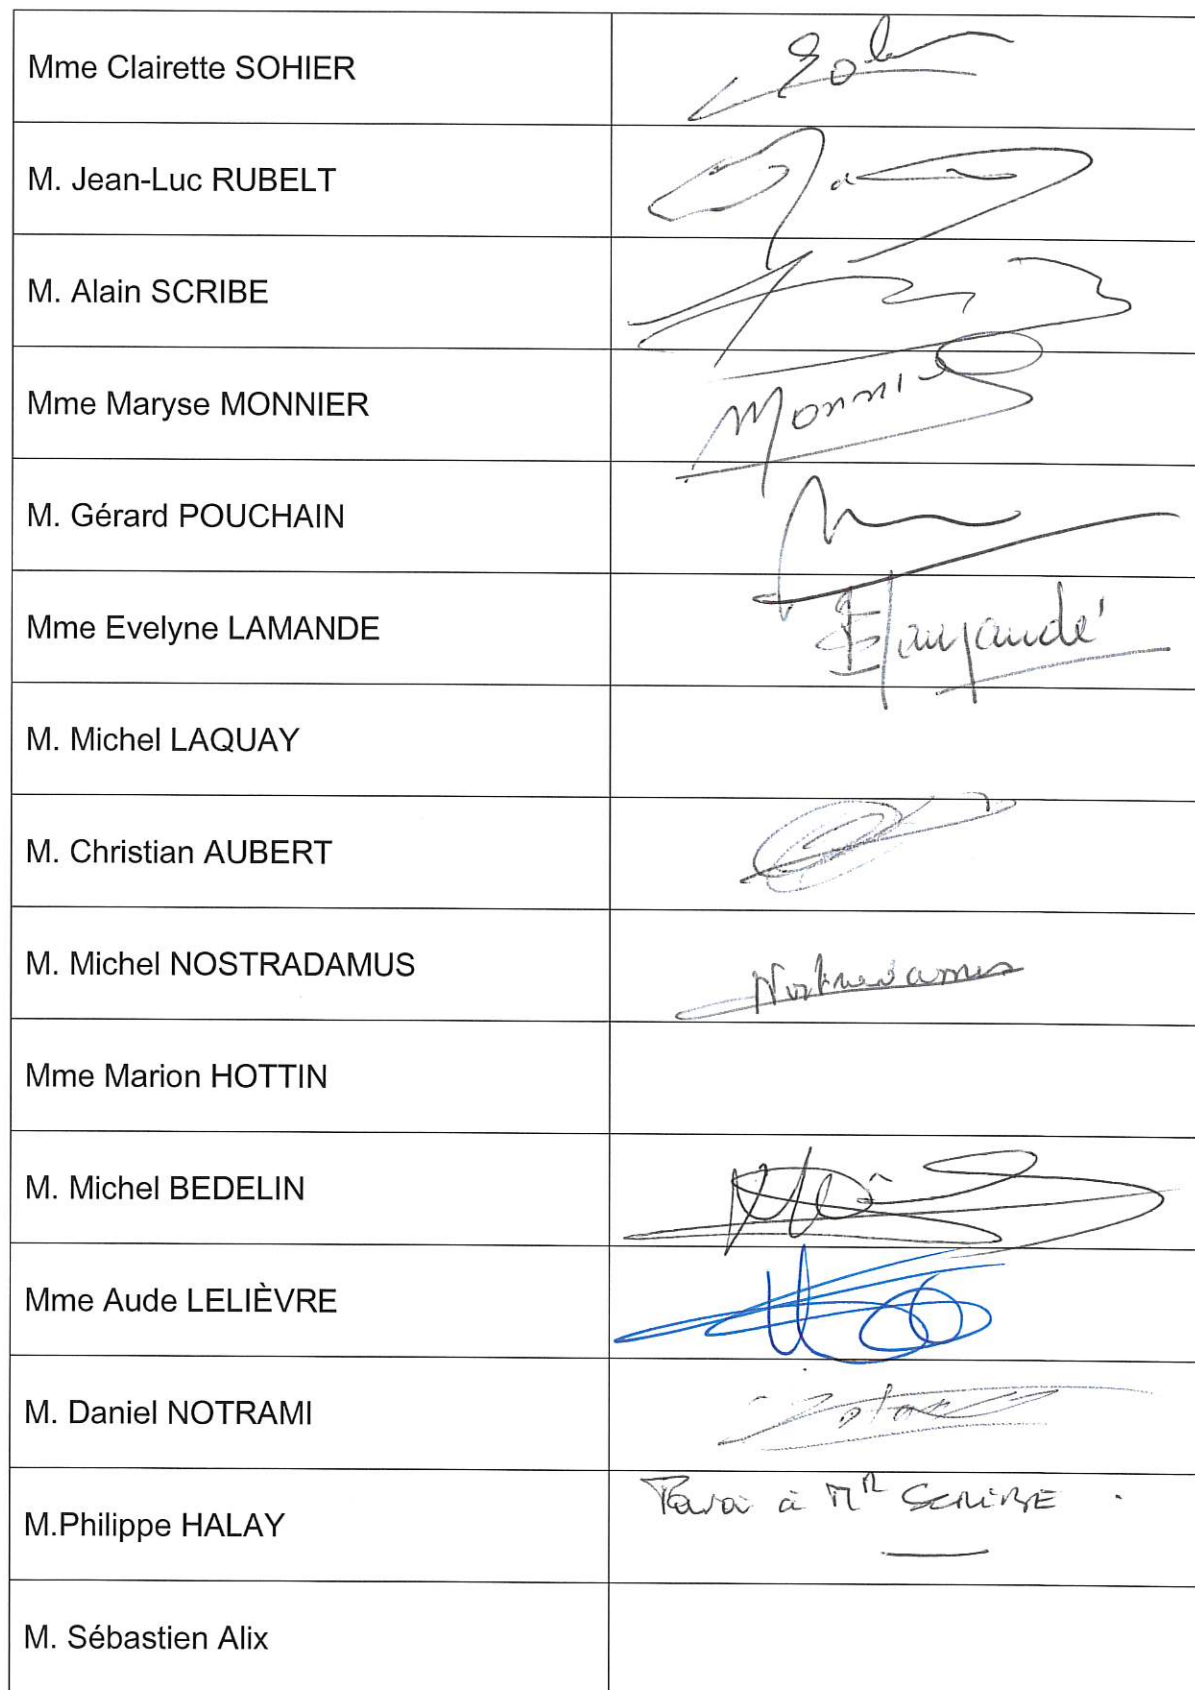 Mme Clairette SOHIER
M. Jean-Luc RUBELT
M. Alain SCRIBE
Mme Maryse MONNIER
Monnie
M. Gérard POUCHAIN
Mme Evelyne LAMANDE
Elamandé
M. Michel LAQUAY
M. Christian AUBERT
M. Michel NOSTRADAMUS
Nostradamus
Mme Marion HOTTIN
M. Michel BEDELIN
Mme Aude LELIÈVRE
M. Daniel NOTRAMI
M.Philippe HALAY
à Mr SCRIBE
M. Sébastien Alix